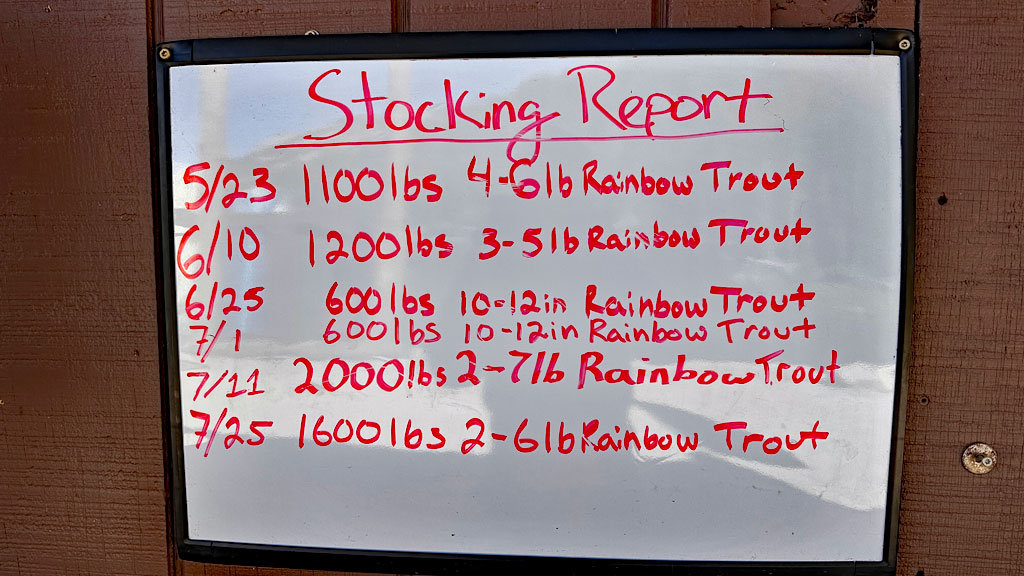 Stocking Report
5/23 1100lbs 4-6lb Rainbow Trout
6/10 1200lbs 3-5lb Rainbow Trout
6/25 600lbs 10-12in Rainbow Trout
7/1 600lbs 10-12in Rainbow Trout
7/11 2000lbs 2-7lb Rainbow Trout
7/25 1600lbs 2-6lb Rainbow Trout